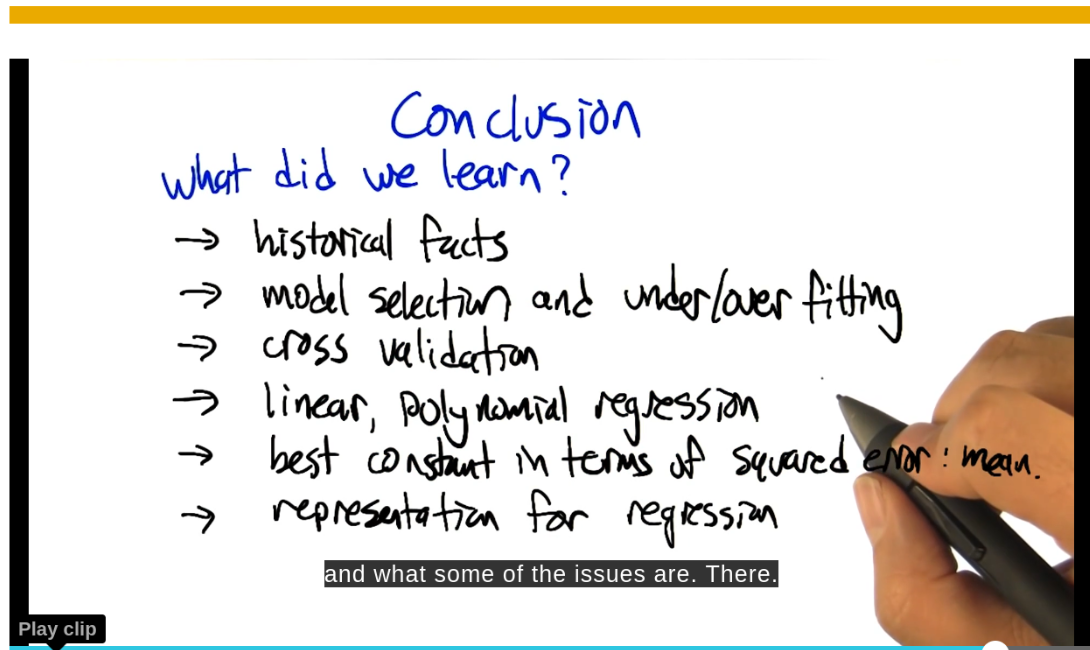 Conclusion
what did we learn?
→ historical facts
→ model selection and under/over fitting
→ cross validation
→ linear, polynomial regression
→ best constant in terms of squared error: mean.
→ representation for regression
and what some of the issues are. There.
Play clip